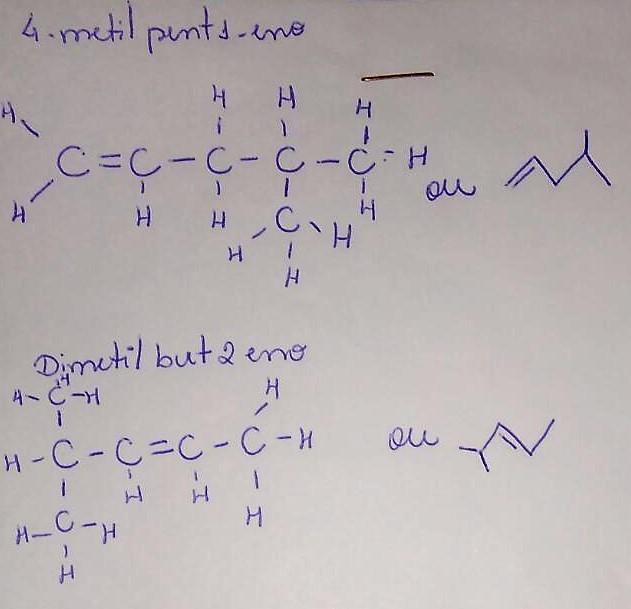 4-metil pent 1-eno
H H H H
C=C-C-C-C-H
H H H C H
H H
H
ou
Dimetil but 2 eno
H
H-C-H H
H-C-C=C-C-H
H H H
H-C-H
H
ou